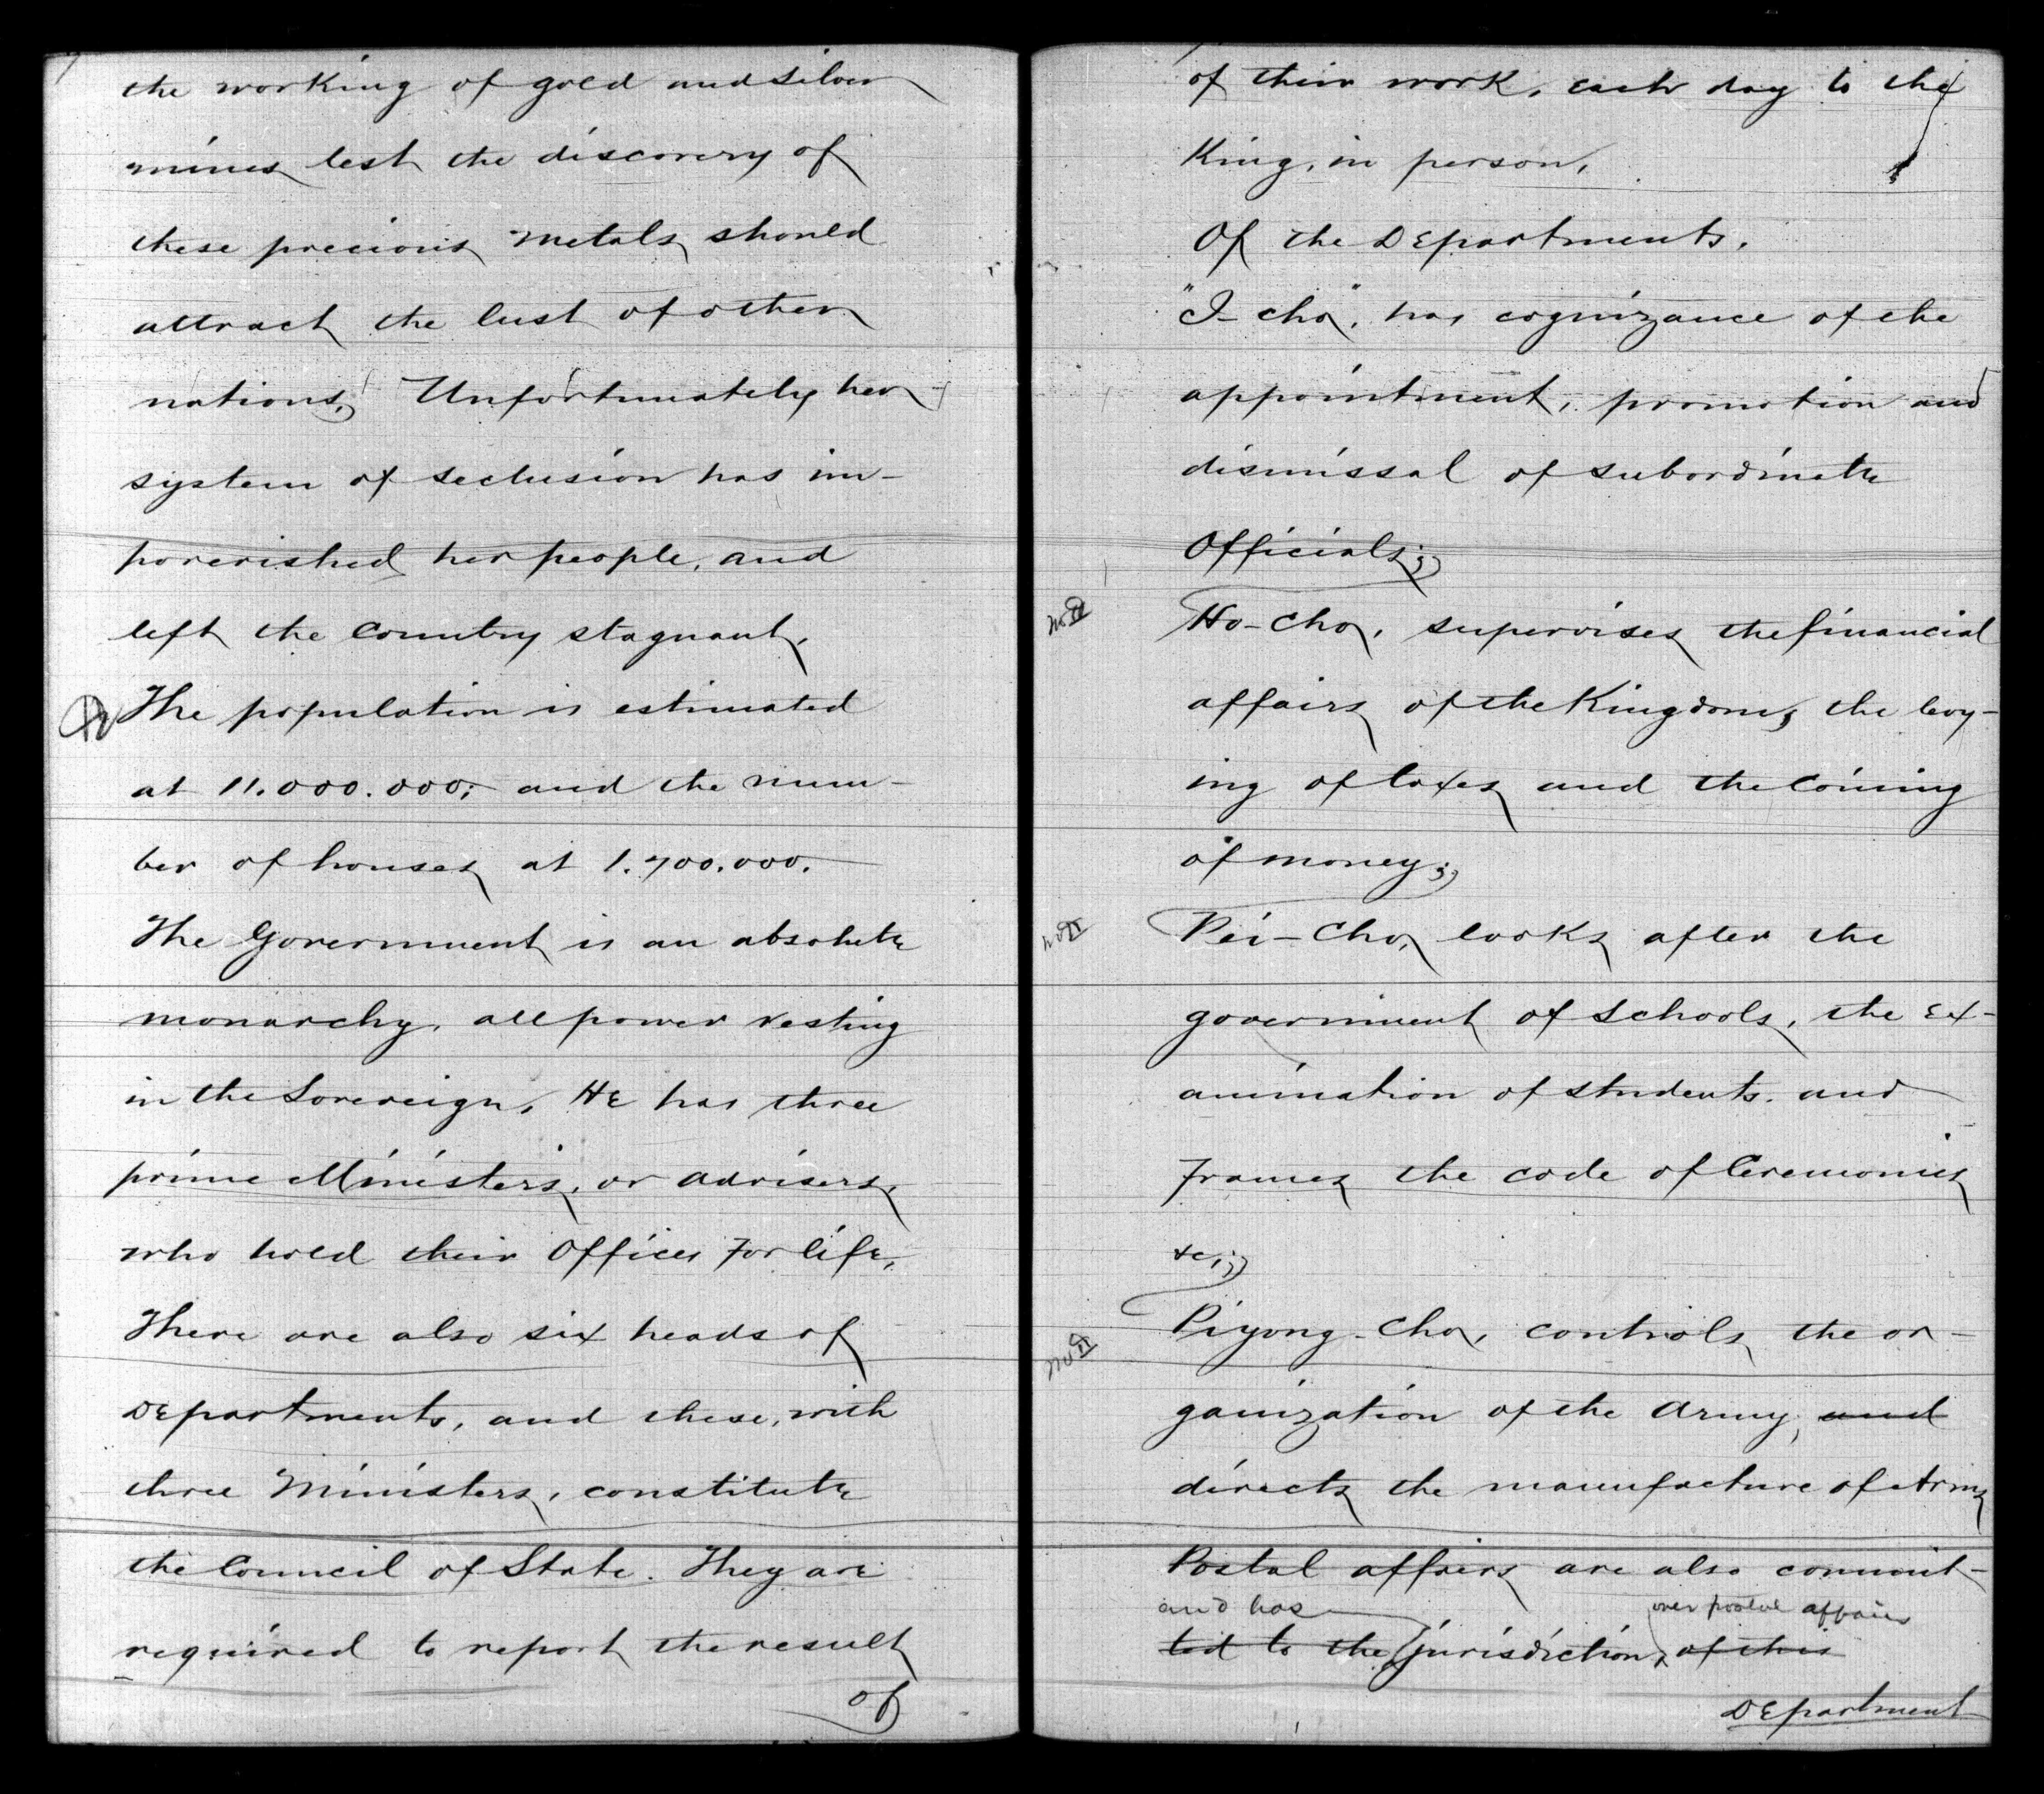 the working of gold and silver
mines lest the discovery of
these precious metals should
attract the lust of other
nations. Unfortunately her
system of seclusion has im-
poverished her people, and
left the Country stagnant.
The population is estimated
at 11.000.000; and the num-
ber of houses at 1.700.000.
The Government is an absolute
monarchy, all power vesting
in the Sovereign. He has three
prime Ministers, or advisers,
who hold their Offices for life.
There are also six heads of
Departments, and these, with
three Ministers, constitute
the Council of State. They are
required to report the result
of
of their work, each day to the
King, in person.
Of the Departments.
"I-cho", has cognizance of the
appointment, promotion and
dismissal of subordinate
Officials;
No ¶
Ho-Cho, supervises the financial
affairs of the Kingdom, the levy-
ing of taxes and the Coining
of money;
No ¶
Rei-Cho, looks after the
government of schools, the ex-
amination of students. and
frames the code of Ceremonies
&c.;
No ¶
Piyong-Cho, controls the or-
ganization of the Army, and
directs the manufacture of Arms
Postal affairs are also commit-
and has over postal affairs
ted to the jurisdiction of this
Department